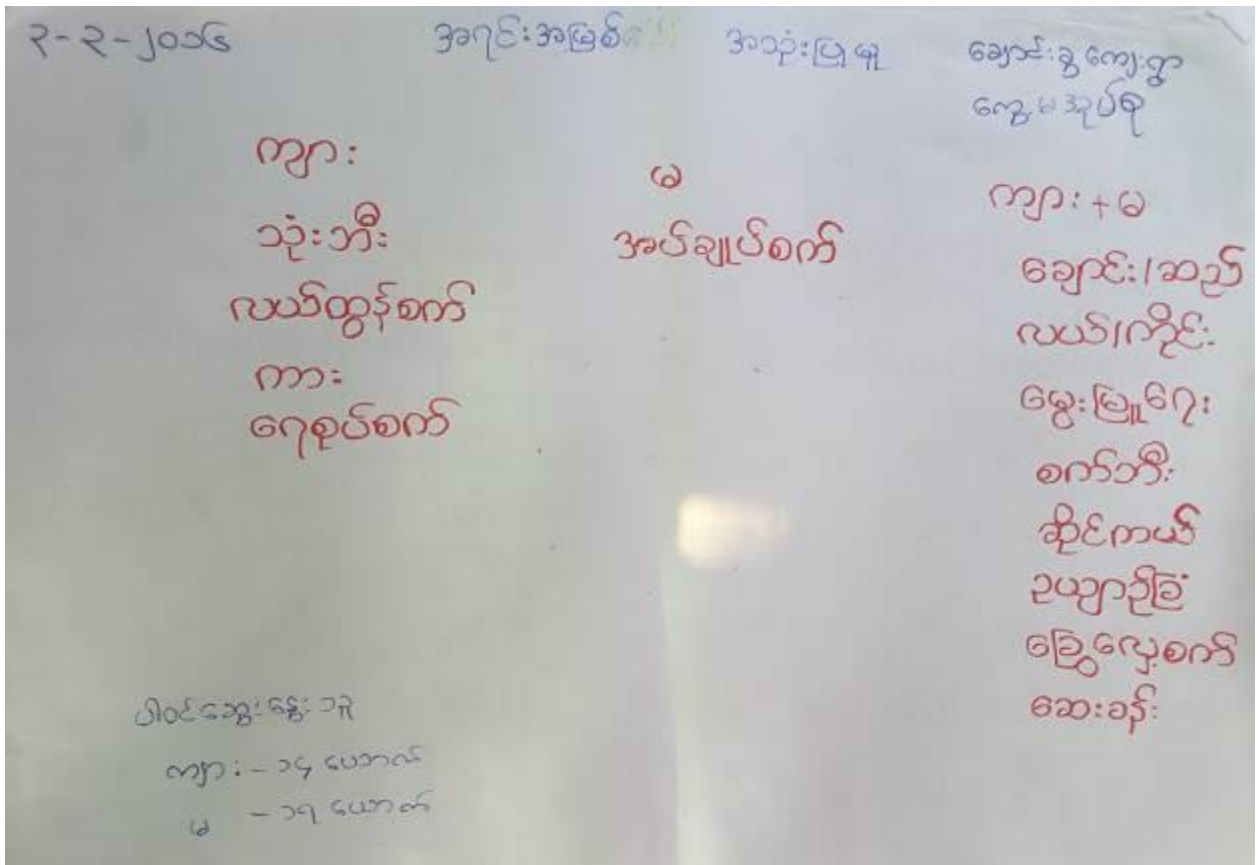 ၃-၃-၂၀၁၆ အရင်းအမြစ် အသုံးပြုမှု ချောင်းခွကျေးရွာ
ကျွေ့မအုပ်စု
ကျား
သုံးဘီး
လယ်ထွန်စက်
ကား
ရေစုပ်စက်
မ
အပ်ချုပ်စက်
ကျား+မ
ချောင်း/ဆည်
လယ်/ကိုင်း
မွေးမြူရေး
စက်ဘီး
ဆိုင်ကယ်
ဥယျာဉ်ခြံ
ခြွေလှေ့စက်
ဆေးခန်း
ပါဝင်ဆွေးနွေးသူ
ကျား - ၁၄ ယောက်
မ - ၁၇ ယောက်